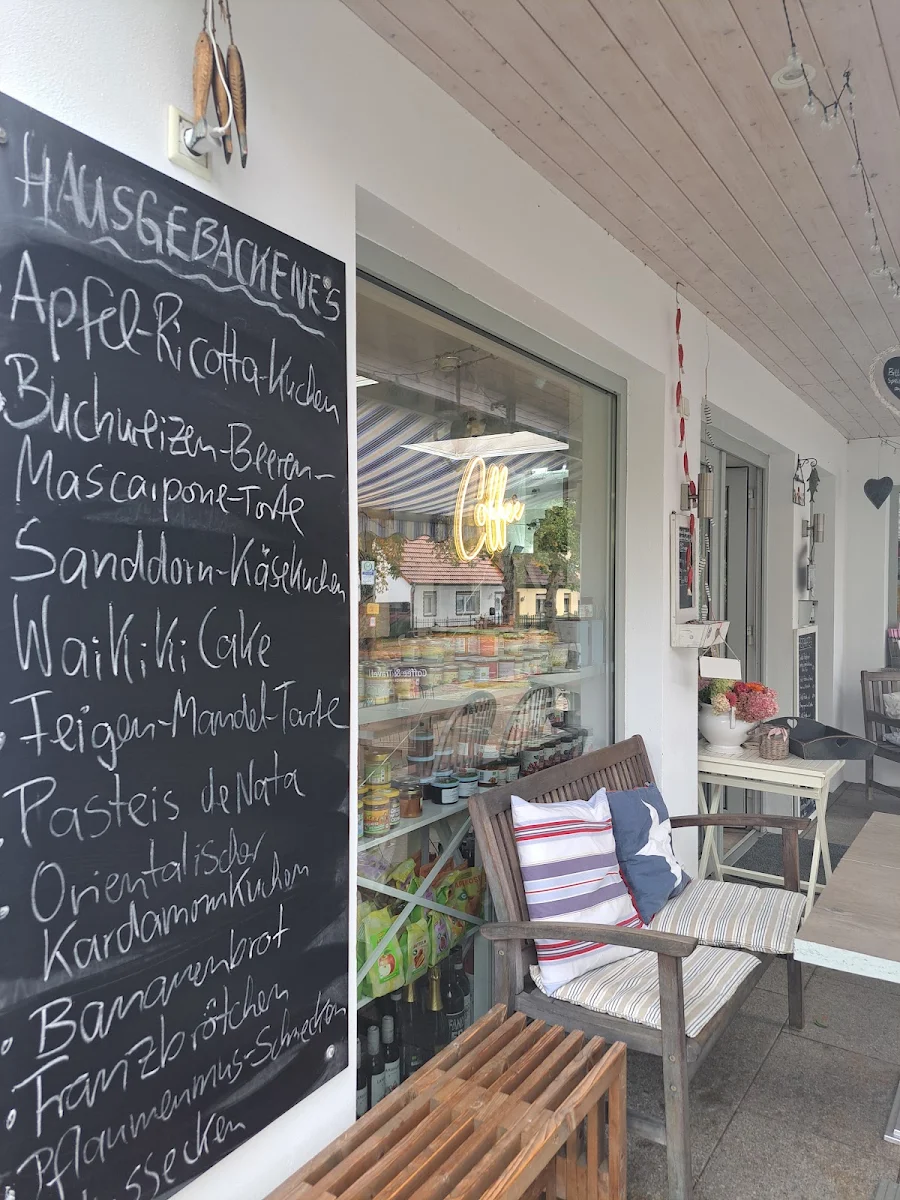 HAUSGEBACKENE'S
Apfel-Ricotta-Kuchen
Buchweizen-Beeren-
Mascarpone-Torte
Sanddorn-Käsekuchen
WaiKiKi Cake
Feigen-Mandel-Tarte
Pasteis de Nata
Orientalischer
Kardamomkuchen
Bananenbrot
Franzbrötchen
Pflaumenmus-Schnecken
Coffee